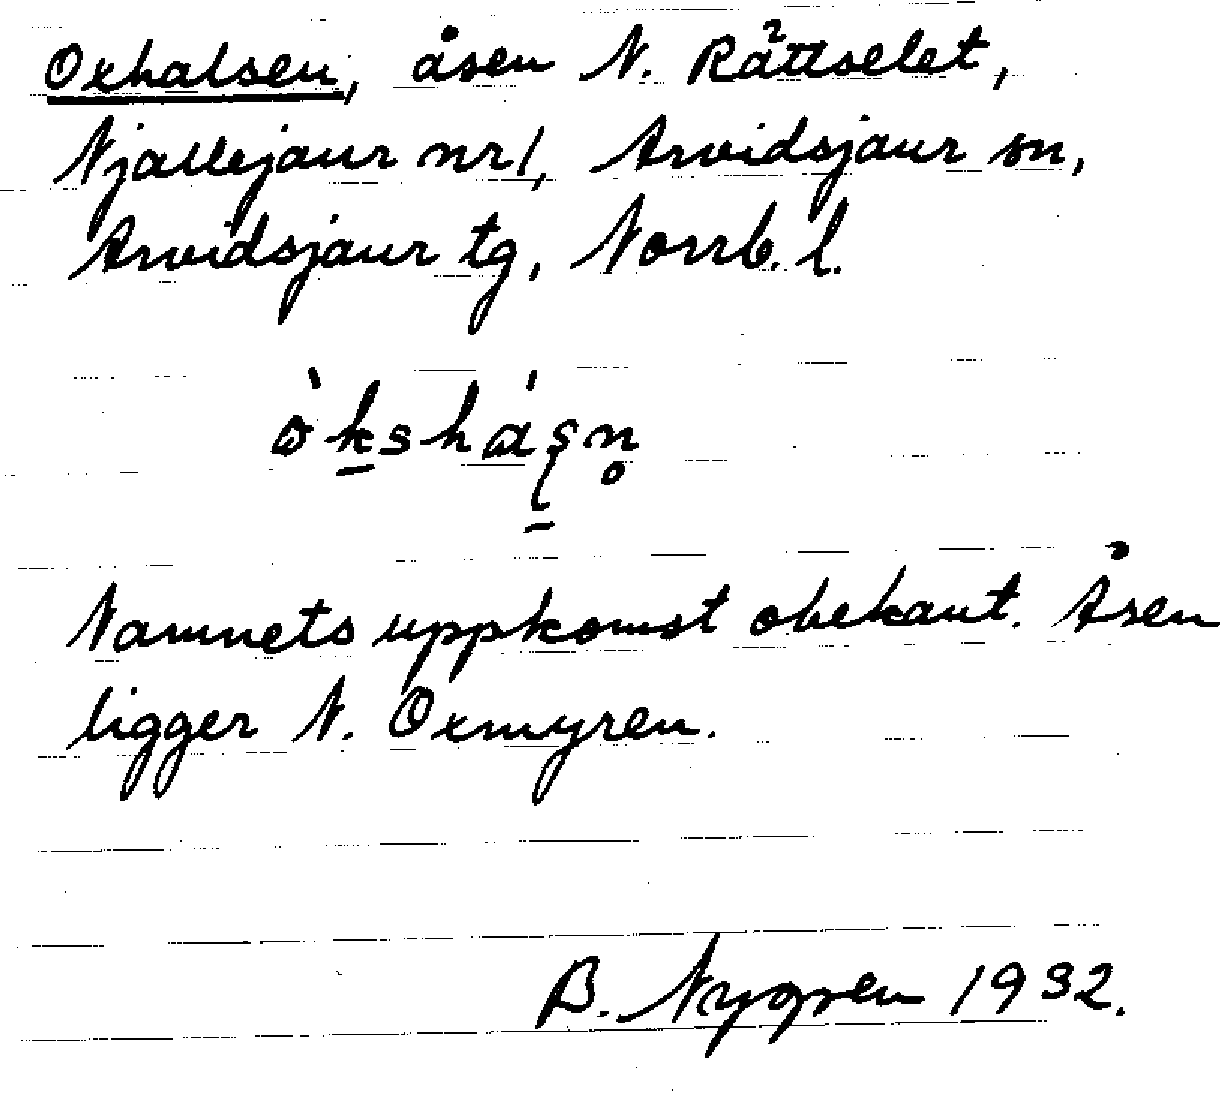 Oxhalsen, åsen N. Rättselet,
Njallejaur nr 1, Arvidsjaur sn,
Arvidsjaur tg, Norrb. l.
Namnets uppkomst obekant. Åsen
ligger N. Oxmyren.
B. Nygren 1932.